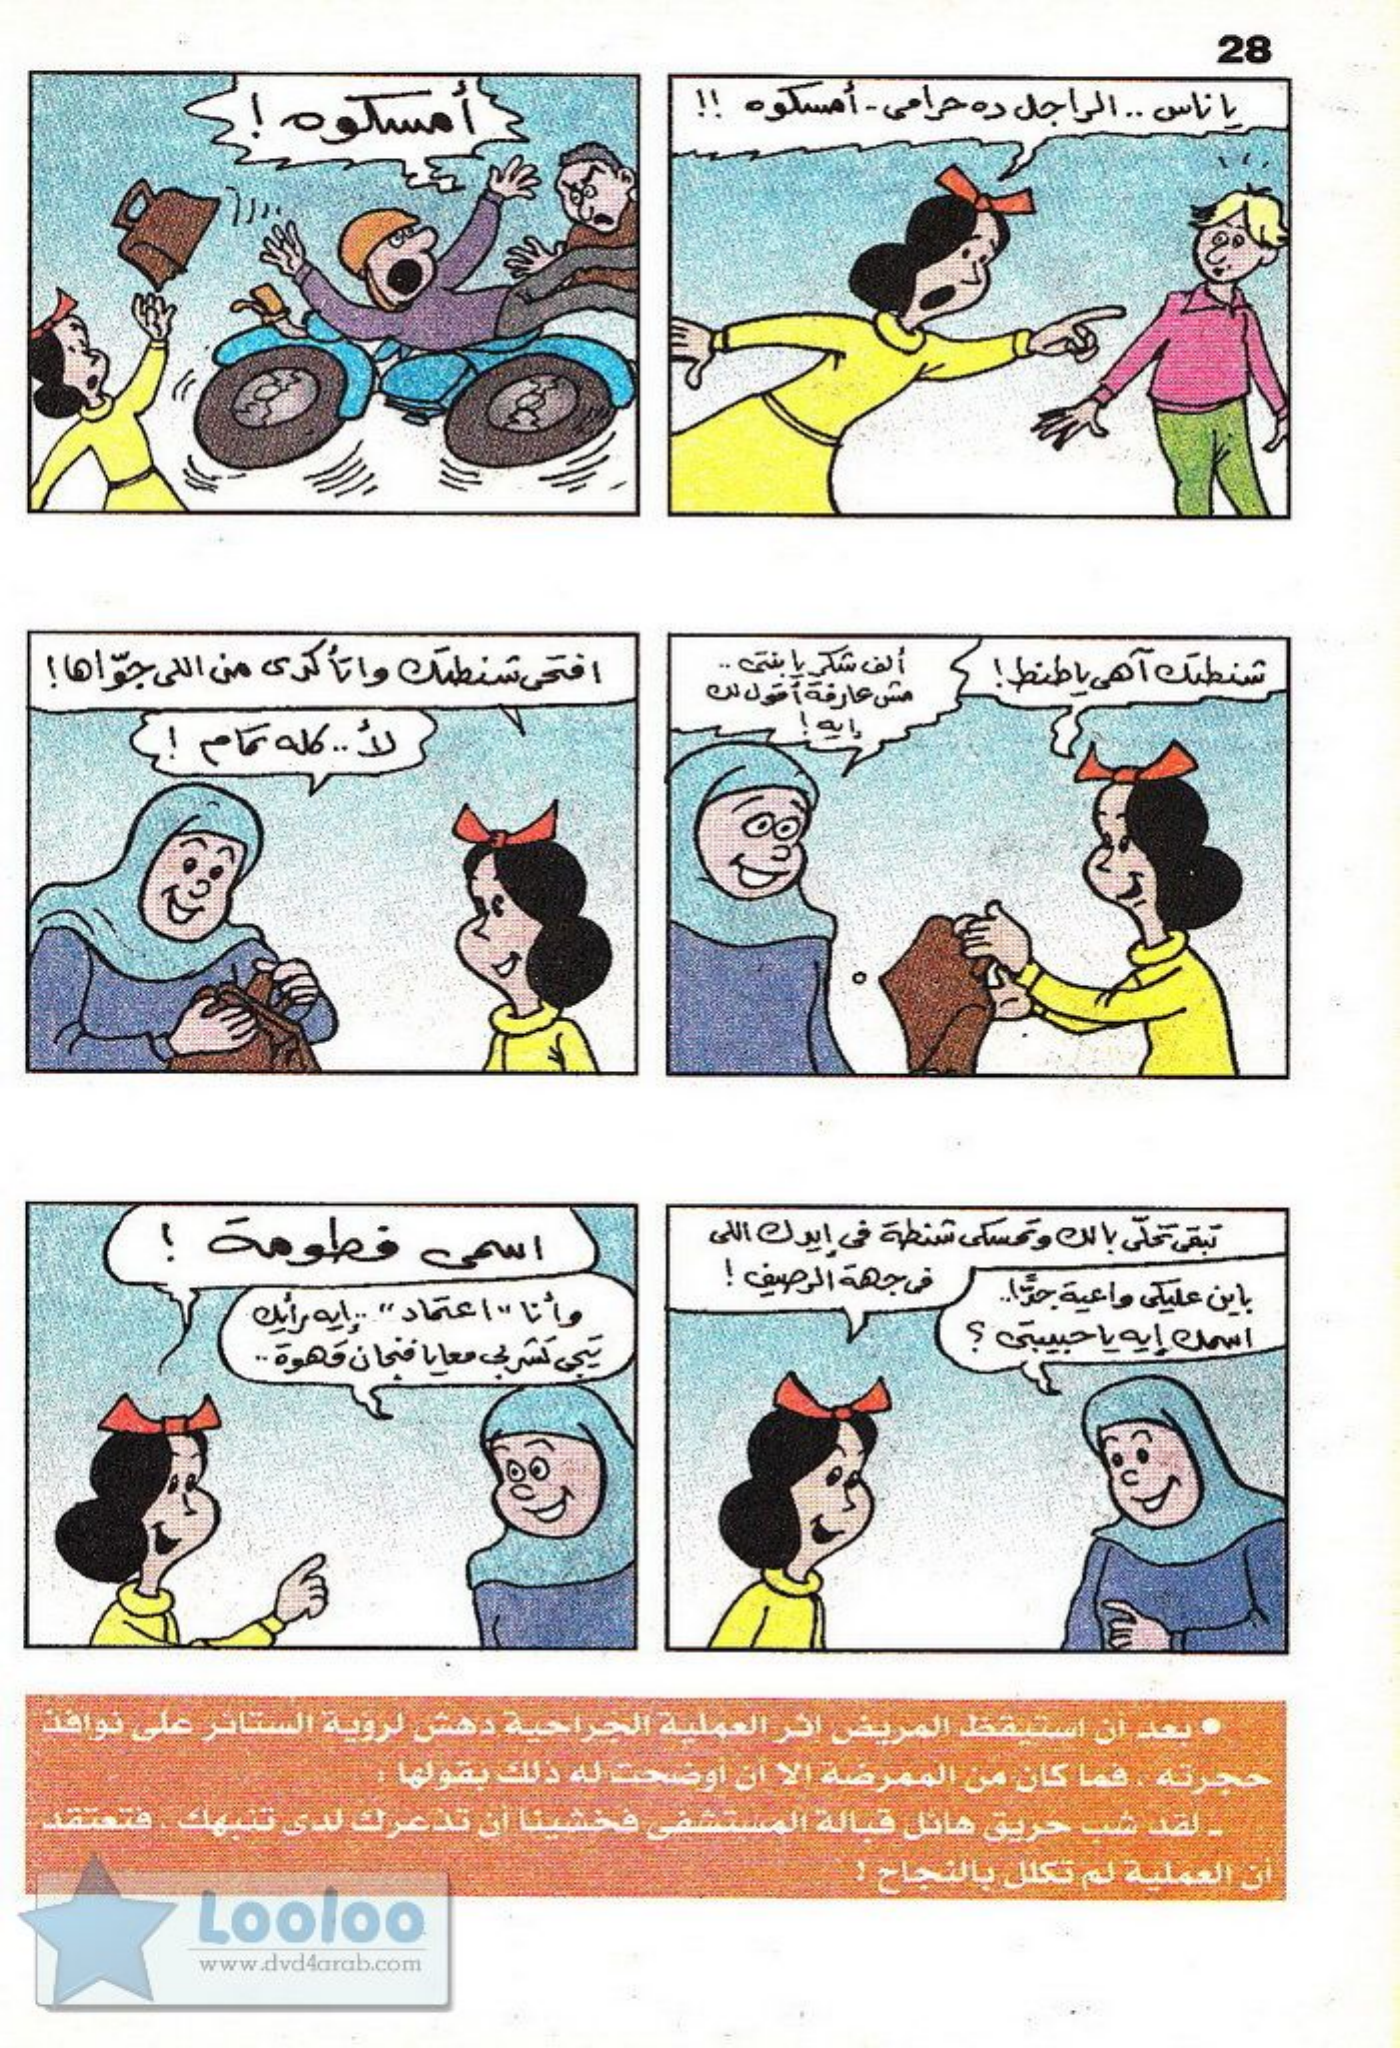 28
يا ناس .. الراجل ده حرامى - أمسكوه !!
أمسكوه !
شنطتك آهى ياطنط !
ألف شكر يا بنتى ..
مش عارفة أقول لك
إيه !
افتحى شنطتك واتأكدى من اللى جوّاها !
لأ .. كله تمام !
تبقى تخلّى بالك وتمسكى شنطة فى إيدك اللى
فى جهة الرصيف !
باين عليكى واعية جدًا..
اسمك إيه يا حبيبتى ؟
اسمى فطومة !
وأنا "اعتماد" .. إيه رأيك
تيجى تشربى معايا فنجان قهوة ..
• بعد أن استيقظ المريض إثر العملية الجراحية دهش لرؤية الستائر على نوافذ
حجرته ، فما كان من الممرضة إلا أن أوضحت له ذلك بقولها :
- لقد شب حريق هائل قبالة المستشفى فخشينا أن تذعرك لدى تنبهك ، فتعتقد
أن العملية لم تكلل بالنجاح !
Looloo
www.dvd4arab.com